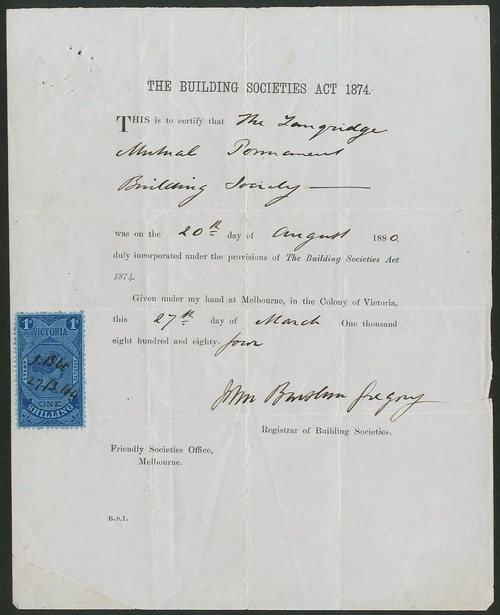 THE BUILDING SOCIETIES ACT 1874.
THIS is to certify that The Langridge
Mutual Permanent
Building Society
was on the 20th day of August 1880.
duly incorporated under the provisions of The Building Societies Act
1874.
Given under my hand at Melbourne, in the Colony of Victoria,
this 27th day of March One thousand
eight hundred and eighty-four
John Gregory
Registrar of Building Societies.
Friendly Societies Office,
Melbourne.
B.S.I.
1s 1s
VICTORIA
STAMP DUTY
27/3/84
ONE
SHILLING